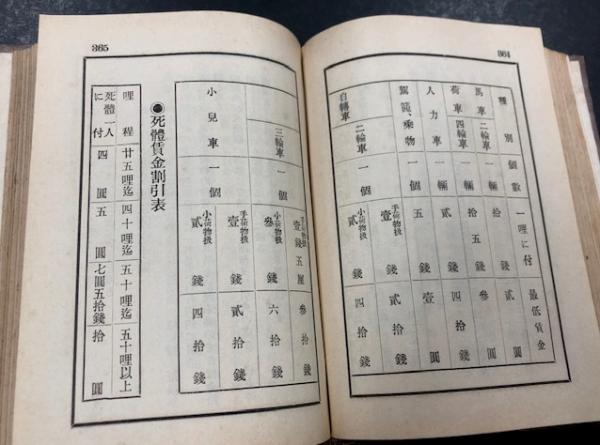 364
種別 個數 一哩に付 最低賃金
馬車 二輪車 一輛 拾錢 貳圓
荷車 四輪車 一輛 拾五錢 參圓
人力車 一輛 貳錢 四拾錢
駕籠、乘物 一個 五錢 壹圓
自轉車 二輪車 一個 手荷物扱 壹錢 貳拾錢
小荷物扱 貳錢 四拾錢
365
三輪車 一個 手荷物扱 壹錢五厘 參拾錢
小荷物扱 參錢 六拾錢
小兒車 一個 手荷物扱 壹錢 貳拾錢
小荷物扱 貳錢 四拾錢
●死體賃金割引表
哩程 廿五哩迄 四十哩迄 五十哩迄 五十哩以上
死體一人に付 四圓 五圓 七圓五拾錢 拾圓